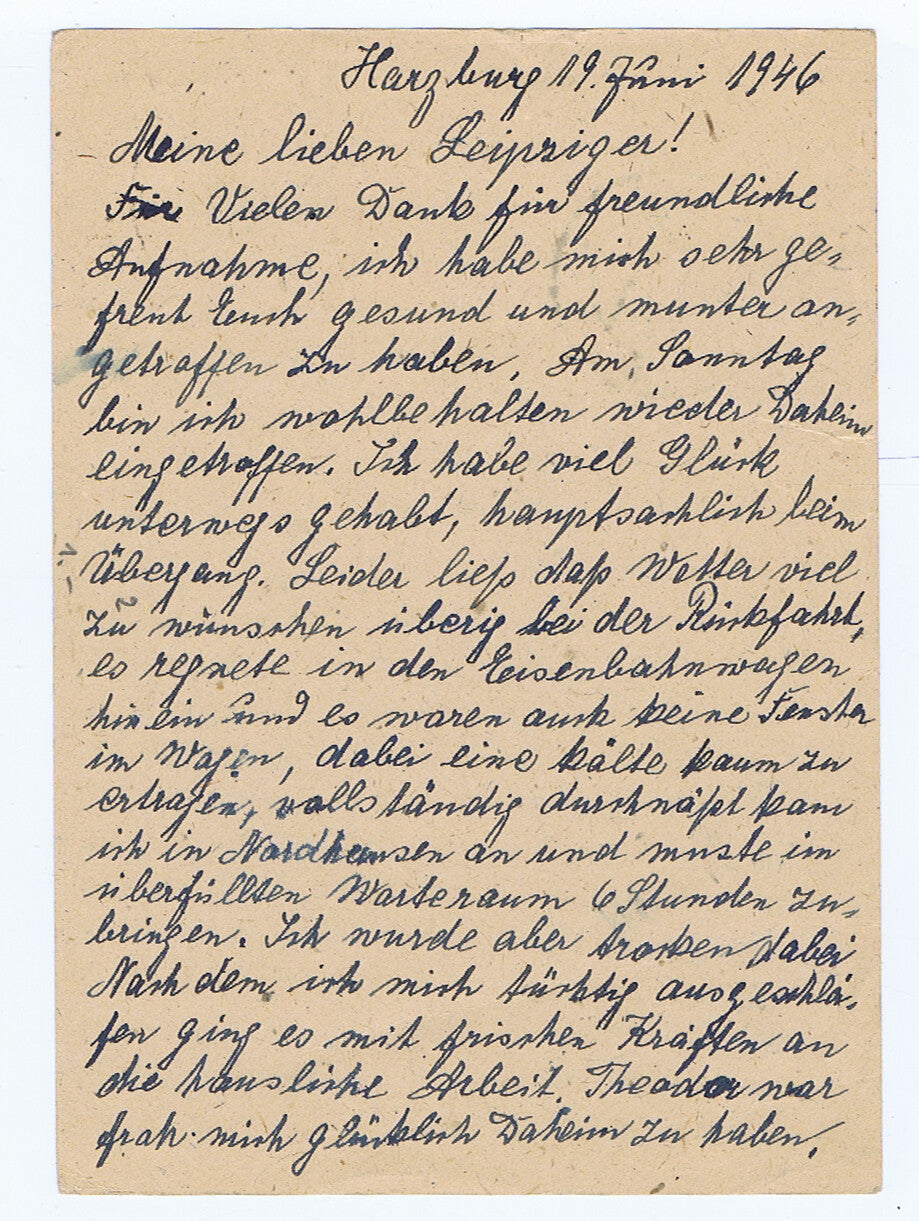 Harzburg 19. Juni 1946
Meine lieben Leipziger!
Für Vielen Dank für freundliche
Aufnahme, ich habe mich sehr ge-
freut Euch gesund und munter an-
getroffen zu haben, Am, Sonntag
bin ich wohlbehalten wieder Daheim
eingetroffen. Ich habe viel Glück
unterwegs gehabt, hauptsachlich beim
Übergang. Leider ließ daß Wetter viel
zu wünschen überig bei der Rückfahrt,
es regnete in den Eisenbahnwagen
hinein und es waren auch keine Fenster
im Wagen, dabei eine kälte kaum zu
ertragen, vollständig durchnäßt kam
ich in Nordhausen an und muste im
überfüllten Warteraum 6 Stunden zu-
bringen. Ich wurde aber trocken dabei
Nach dem ich mich tüchtig ausgeschla-
fen ging es mit frischen Kräften an
die hausliche Arbeit. Theodor war
froh mich glücklich Daheim zu haben,